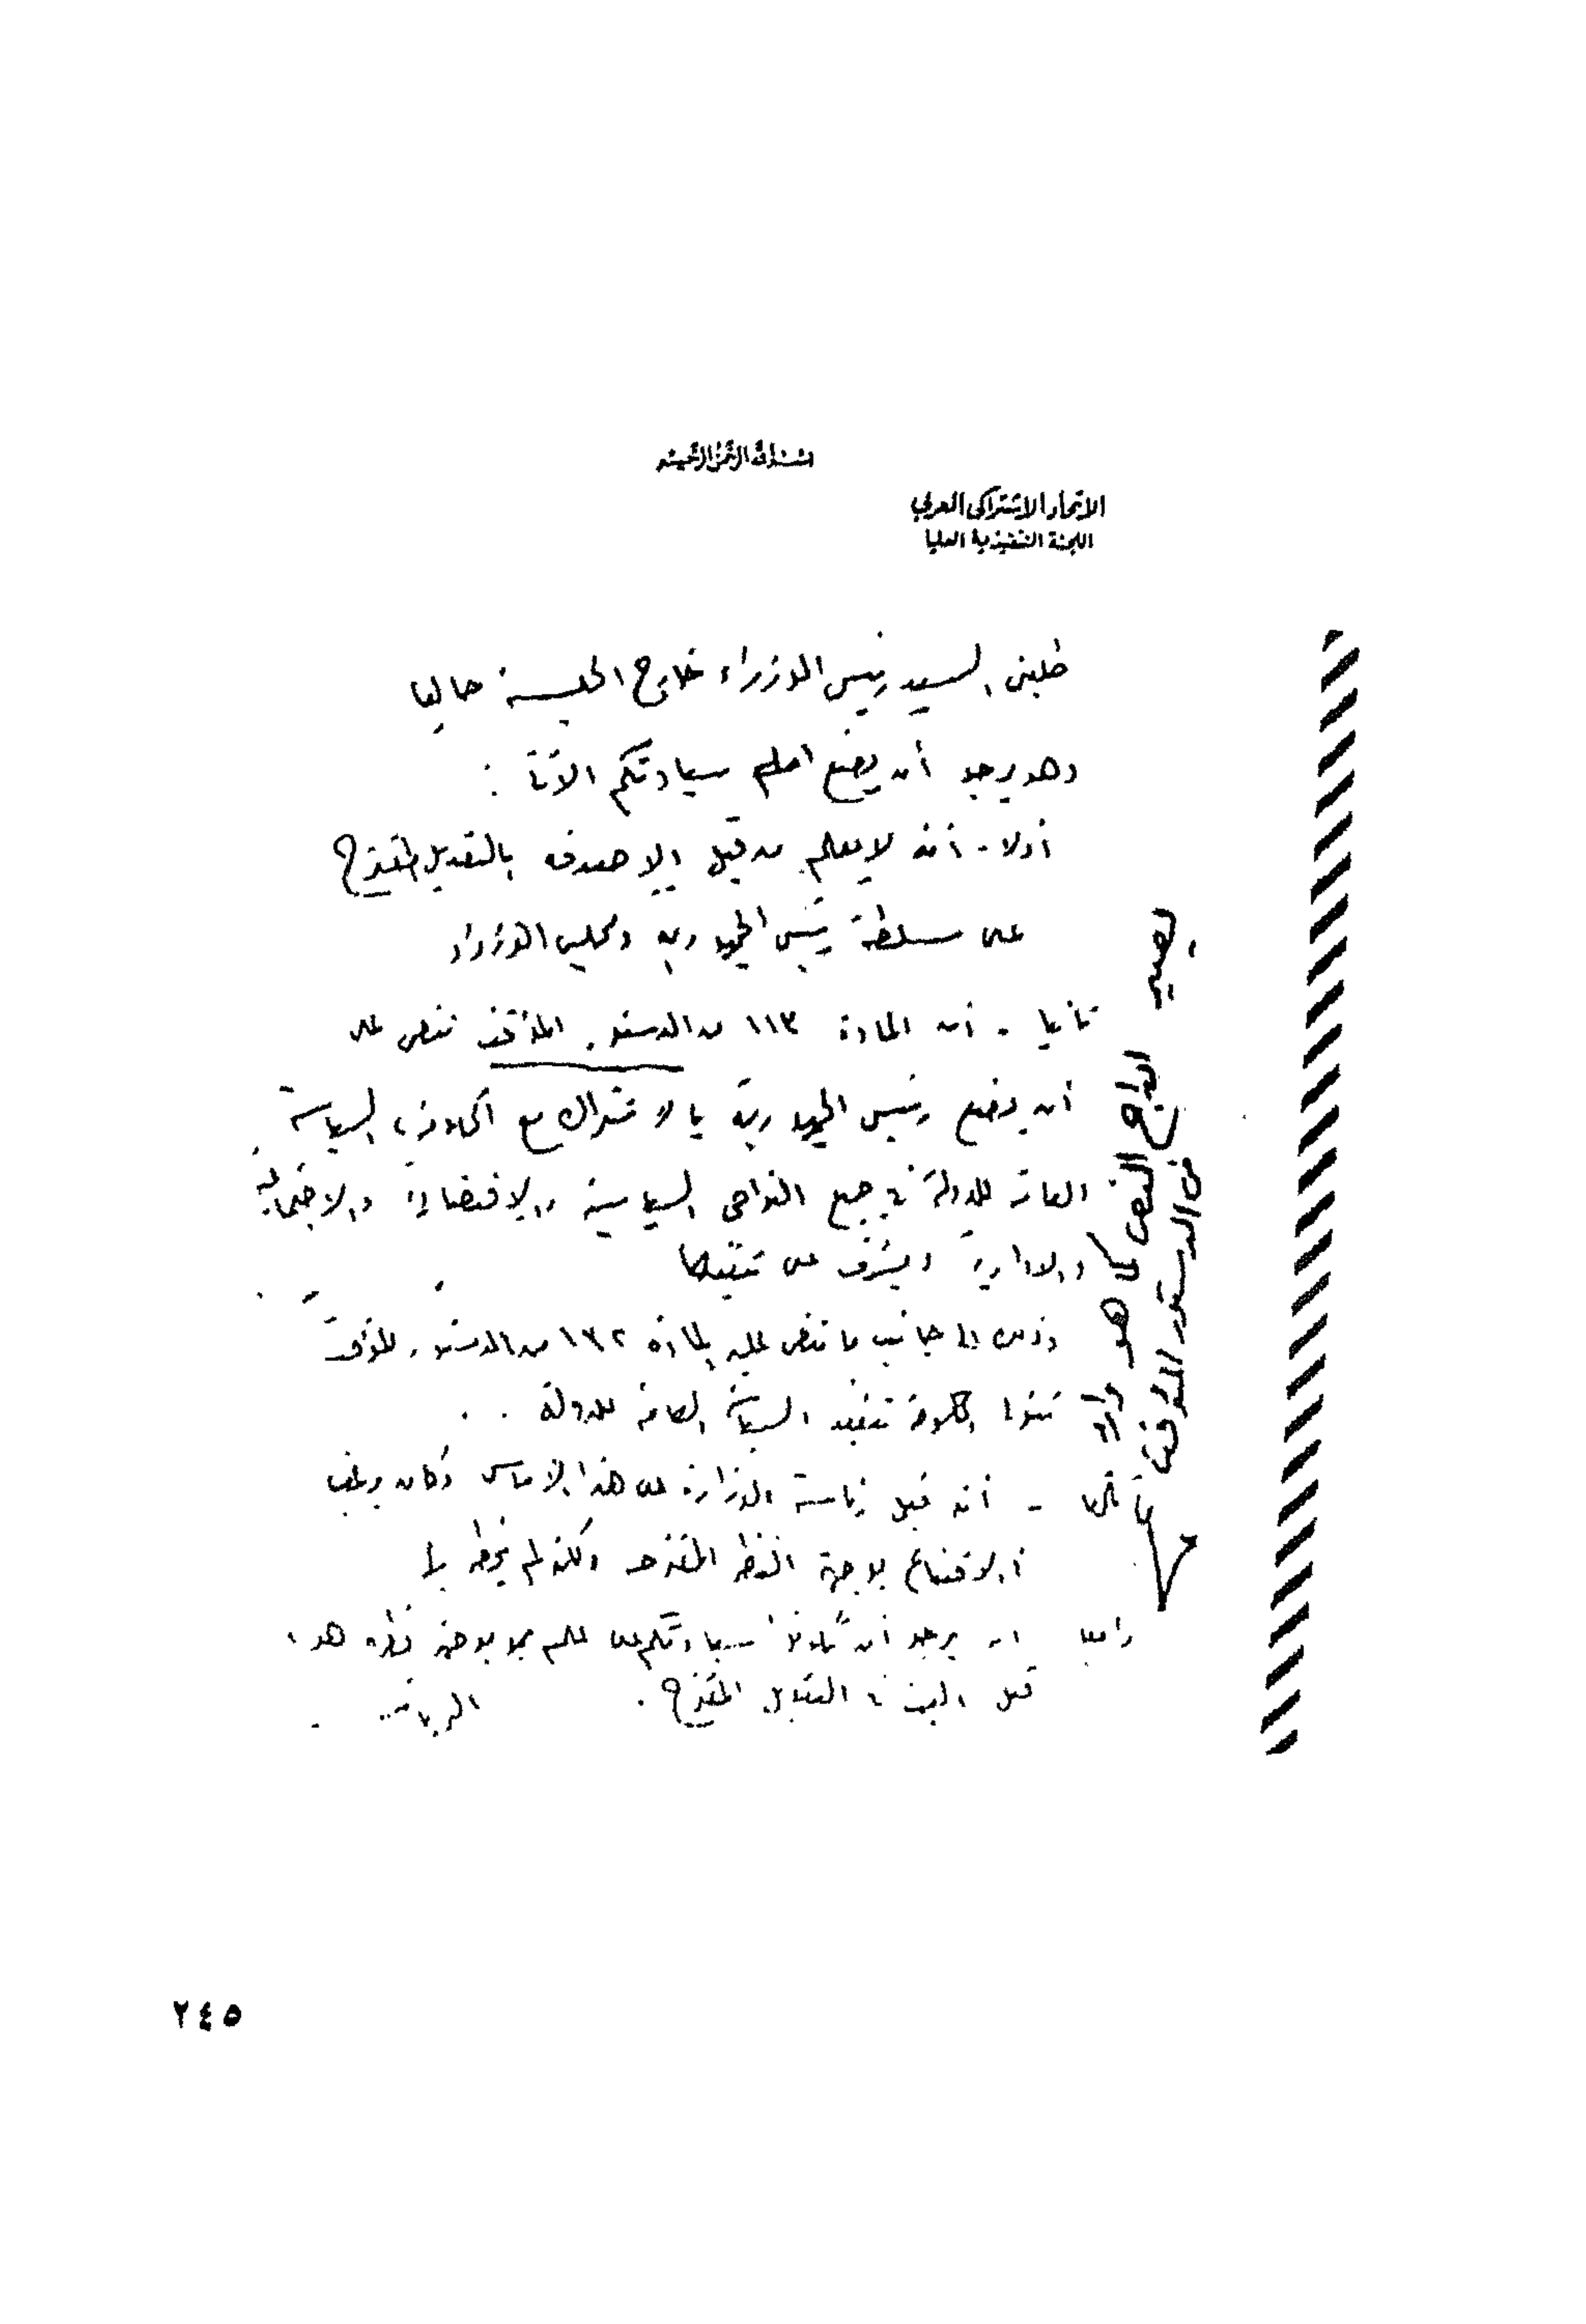 بسم الله الرحمن الرحيم
الاتحاد الاشتراكى العربى
اللجنة التنفيذية العليا
طلبنى السيد رئيس الوزراء خارج الجلسة حاليا
وهو يرجو أن يضع امام سيادتكم الآتى :
أولا - أنه لا يعلم من قبل بالتعديل المقترح
على سلطة رئيس الجمهورية ومجلس الوزراء
ثانيا - أن المادة ١١٣ من الدستور المؤقت تنص على
أن يضع رئيس الجمهورية بالاشتراك مع الحكومة السياسة
العامة للدولة فى جميع النواحى السياسية والاقتصادية والاجتماعية
والادارية ويشرف على تنفيذها
وذلك الى جانب ما تنص عليه المادة ١٣٢ من الدستور المؤقت
تتولى الحكومة تنفيذ السياسة العامة للدولة . .
ثالثا - أنه قبل رئاسة الوزارة على هذا الاساس وكان يجب
الاقتناع بوجهة النظر المقترحة ولكنه لم يخطر بها
رابعا يرجو أن تكونوا سيادتكم على علم بوجهة نظره هو ،
قبل البت فى التعديل المقترح .
يصير
ادراج النص كما هو وارد
فى الدستور المؤقت
٢٤٥